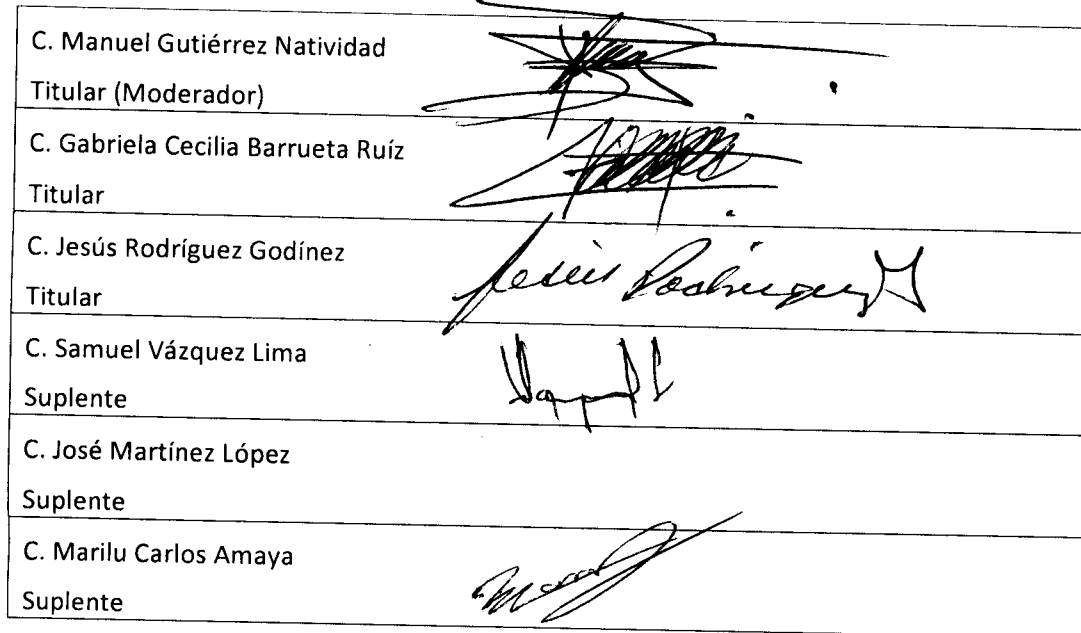 C. Manuel Gutiérrez Natividad
Titular (Moderador)
C. Gabriela Cecilia Barrueta Ruíz
Titular
C. Jesús Rodríguez Godínez
Titular
Jesús Rodríguez
C. Samuel Vázquez Lima
Suplente
C. José Martínez López
Suplente
C. Marilu Carlos Amaya
Suplente